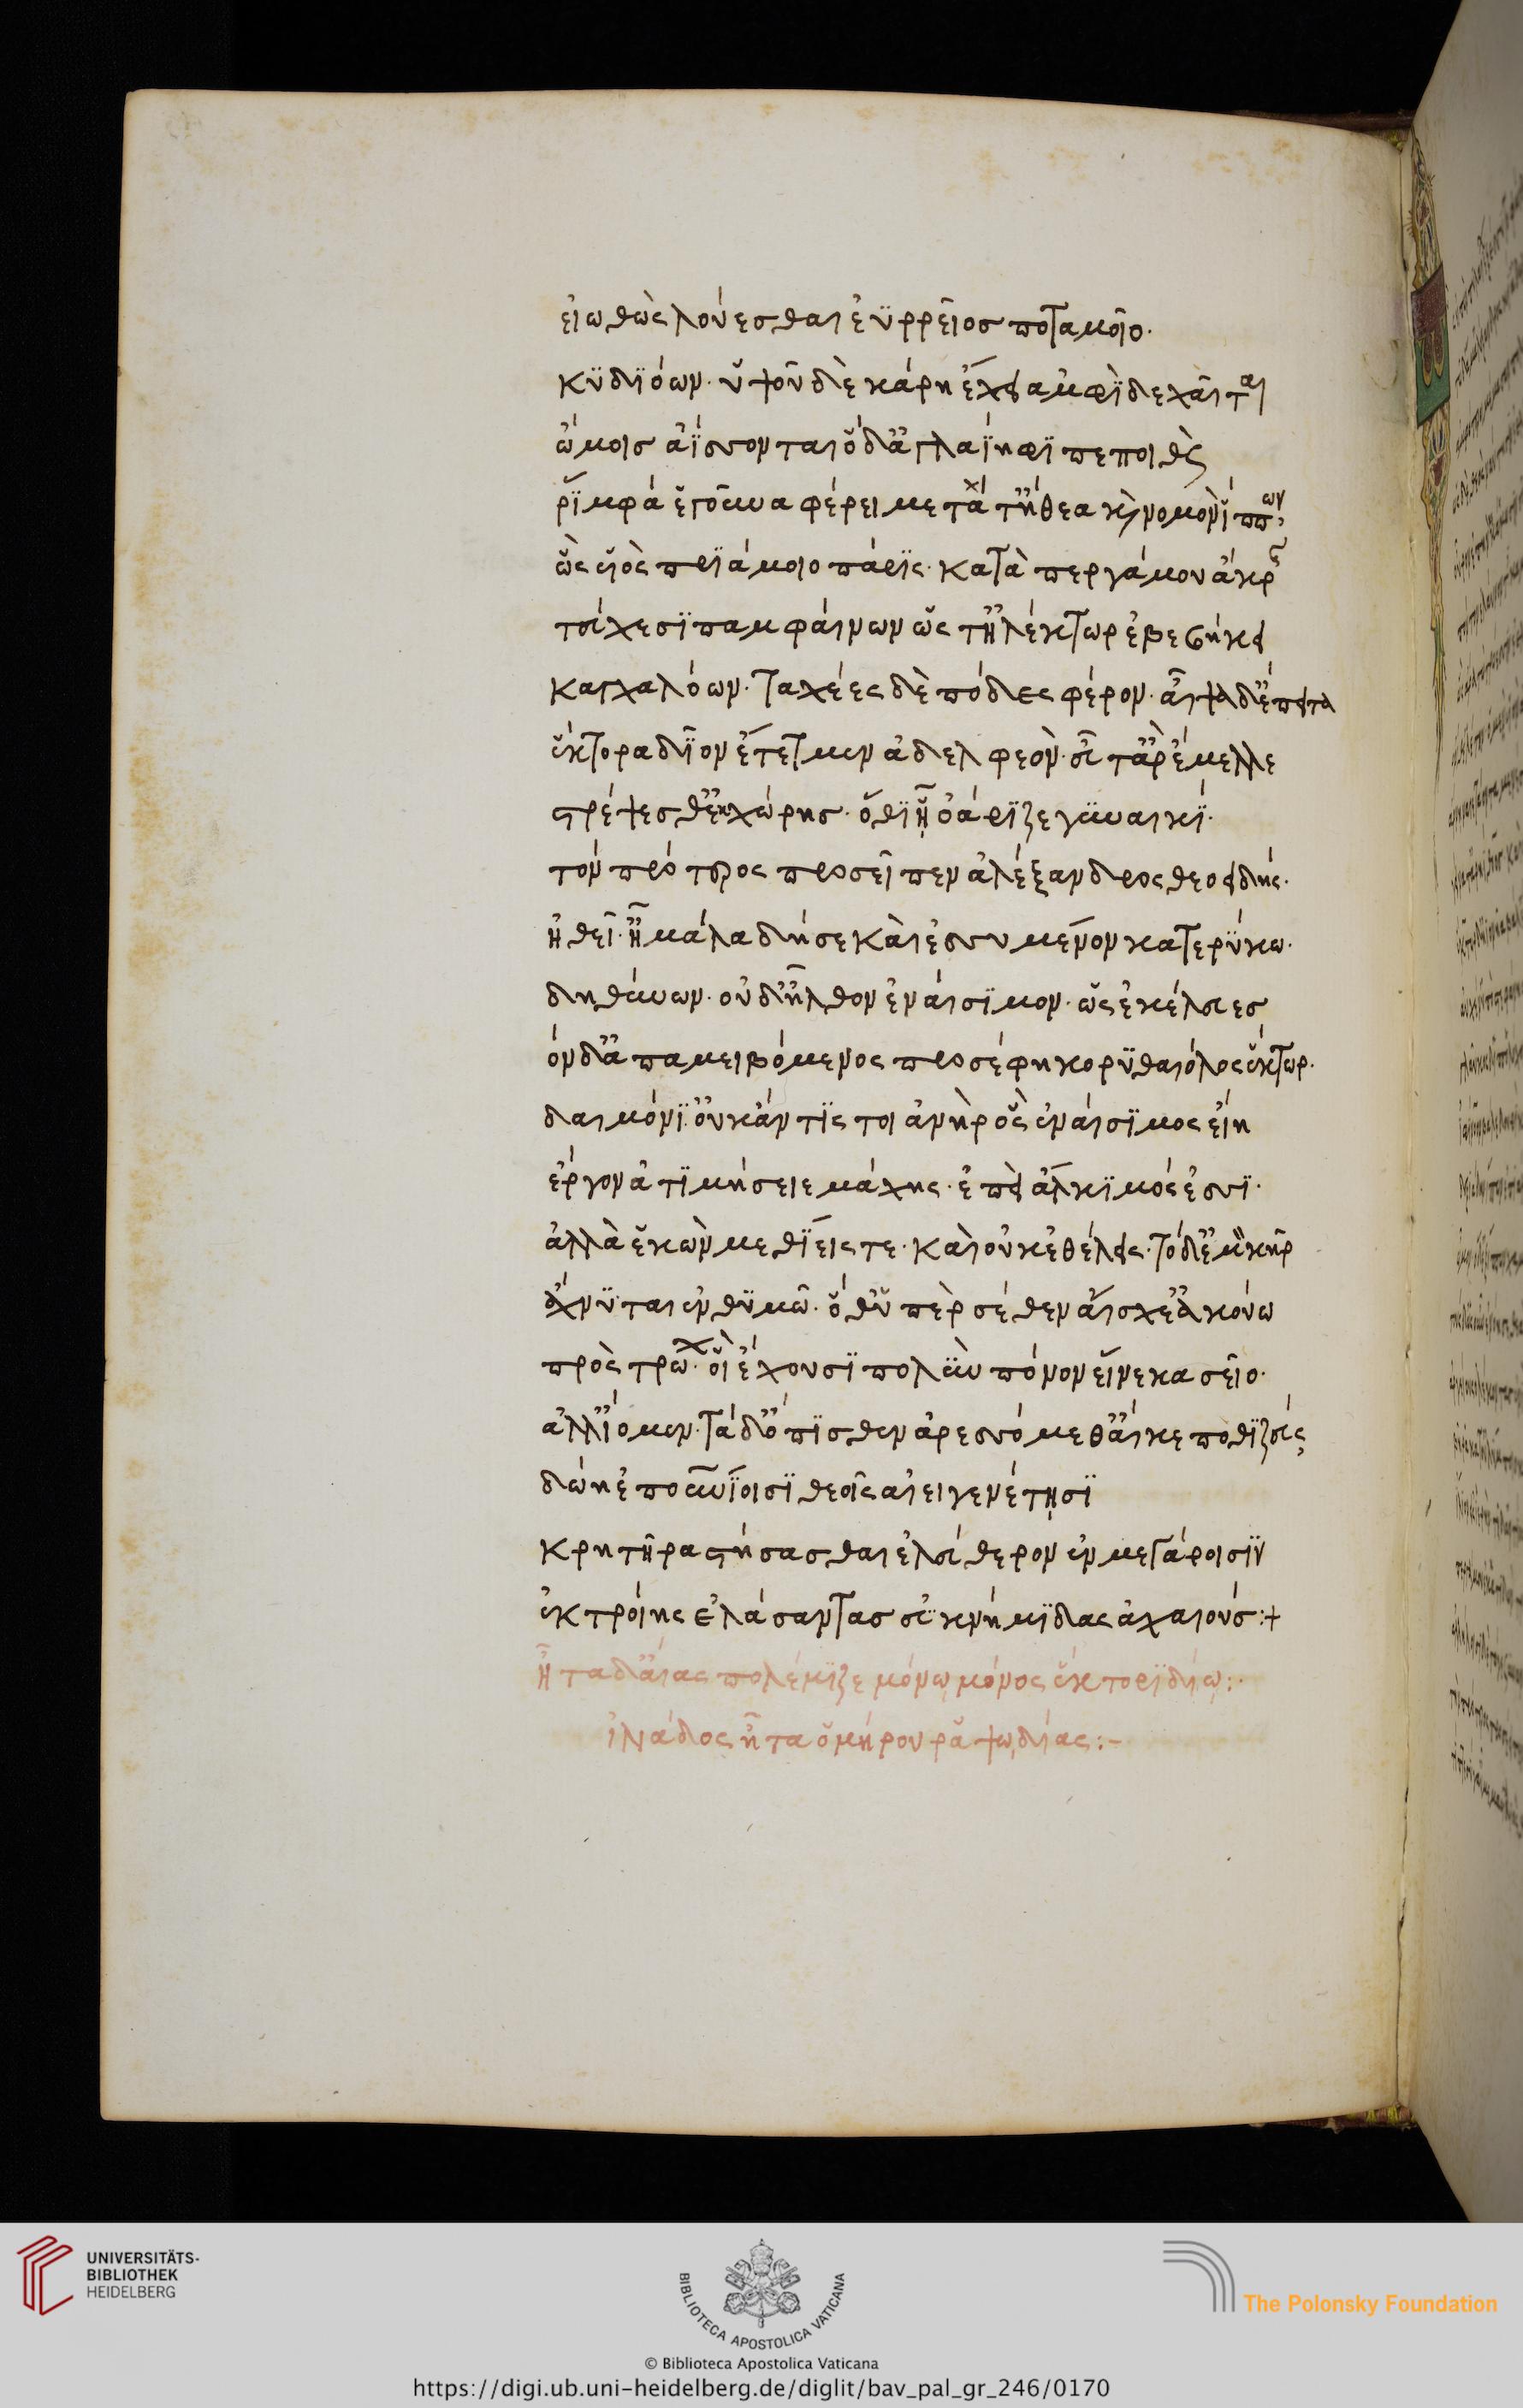 εἰωθὼς λούεσθαι ἐϋρρεῖος ποταμοῖο·
κϋδϊόων· ὑψοῦ δὲ κάρη ἔχει ἀμφὶ δὲ χαῖται
ὤμοις ἀΐσσονται ὁ δ' ἀγλαΐηφϊ πεποιθὼς
ῥίμφά ἑ γοῦνα φέρει μετά τ' ἤθεα καὶ νομὸν ἵππων·
ὣς υἱὸς πριάμοιο πάρϊς· κατὰ περγάμου ἄκρης
τεύχεσϊ παμφαίνων ὥς τ' ἠλέκτωρ ἐβεβήκει
καγχαλόων· ταχέες δὲ πόδες φέρον· αἶψα δ' ἔπειτα
ἕκτορα δῖον ἔτετμεν ἀδελφεόν· εὖτ' ἂρ ἔμελλε
στρέψεσθ' ἐκ χώρης· ὅθϊ ᾗ ὀάριζε γυναικί·
τὸν πρότερος προσεῖπεν ἀλέξανδρος θεοειδής·
ἠθεῖ· ἦ μάλα δή σε καὶ ἐσσύμενον κατερύκω·
δηθύνων· οὐδ' ἦλθον ἐναίσϊμον· ὡς ἐκέλευες
τὸν δ' ἀπαμειβόμενος προσέφη κορϋθαιόλος ἕκτωρ·
δαιμόνϊ' οὐκ ἄν τίς τοι ἀνὴρ ὃς ἐναίσϊμος εἴη
ἔργον ἀτϊμήσειε μάχης· ἐπεὶ ἄλκϊμός ἐσσϊ·
ἀλλὰ ἑκὼν μεθΐεις τε· καὶ οὐκ ἐθέλεις· τὸ δ' ἐμὸν κῆρ
ἄχνϋται ἐν θϋμῶ· ὅθ' ὑπὲρ σέθεν αἴσχε' ἀκούω
πρὸς τρώων· οἳ ἔχουσϊ πολὺν πόνον εἵνεκα σεῖο·
ἀλλ' ἴομεν· τὰ δ' ὄπισθεν ἀρεσσόμεθ' αἴ κε ποθϊ ζεύς
δώη ἐπουρανίοισϊ θεοῖς αἰειγενέτῃσϊ
κρητῆρα στήσασθαι ἐλεύθερον ἐν μεγάροισϊν
ἐκ τροίης ἐλάσαντας εὐκνήμϊδας ἀχαιούς:+
ἦτα δ' αἴας πολέμϊζε μόνω μόνος ἕκτορϊ δίω:·
ἰλιάδος ἦτα ὁμήρου ῥαψωδίας:-
UNIVERSITÄTS-
BIBLIOTHEK
HEIDELBERG
BIBLIOTECA APOSTOLICA VATICANA
The Polonsky Foundation
© Biblioteca Apostolica Vaticana
https://digi.ub.uni-heidelberg.de/diglit/bav_pal_gr_246/0170